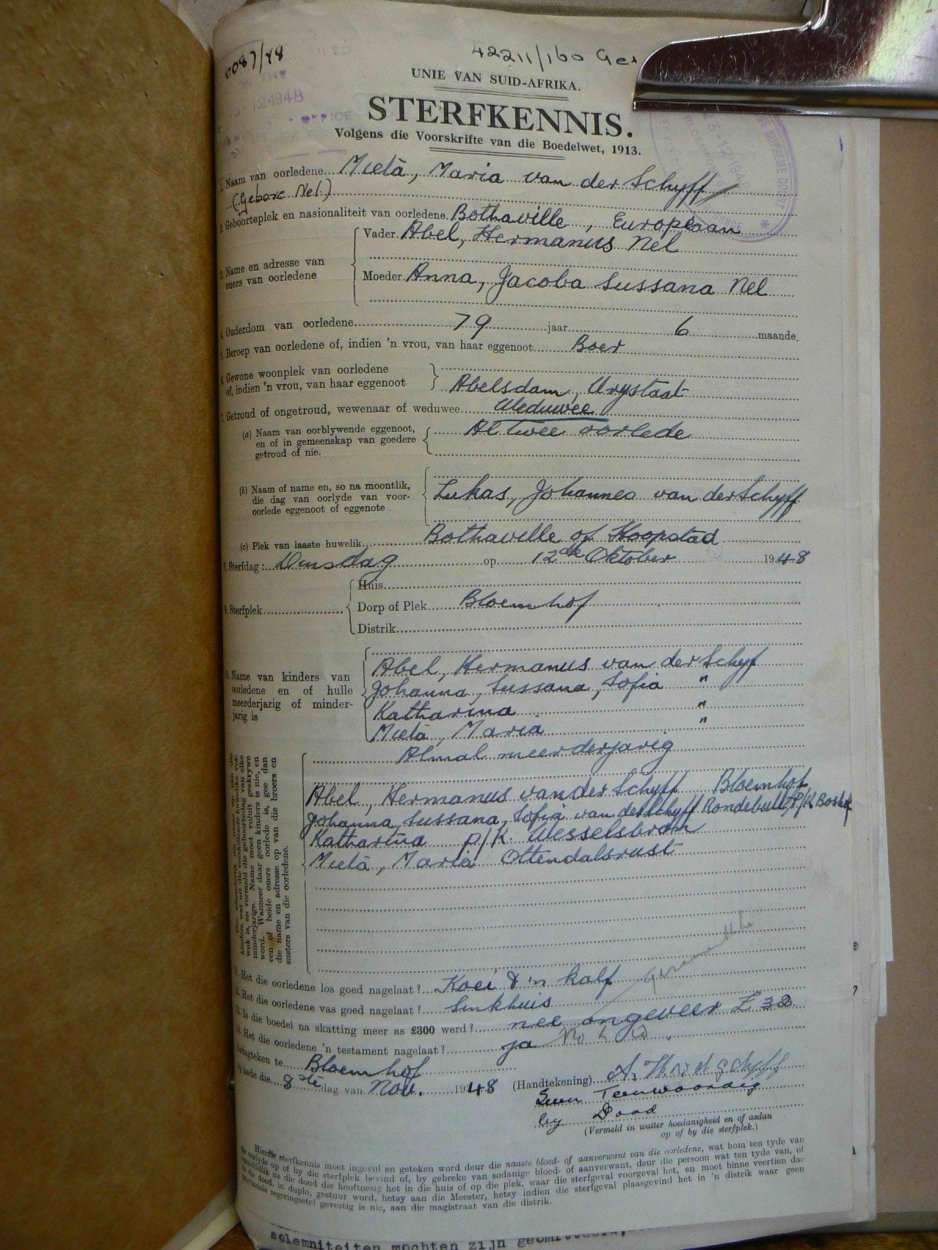 0087/48
42211/160
UNIE VAN SUID-AFRIKA.
STERFKENNIS.
Volgens die Voorskrifte van die Boedelwet, 1913.
1. Naam van oorledene Mietà, Maria van der Schyff
(Gebore Nel.)
2. Geboorteplek en nasionaliteit van oorledene. Bothaville, Europeaan
3. Name en adresse van ouers van oorledene
Vader Abel, Hermanus Nel
Moeder Anna, Jacoba Sussana Nel
4. Ouderdom van oorledene 79 jaar 6 maande.
5. Beroep van oorledene of, indien 'n vrou, van haar eggenoot Boer
6. Gewone woonplek van oorledene
of, indien 'n vrou, van haar eggenoot
Abelsdam, Vrystaat
7. Getroud of ongetroud, wewenaar of weduwee Weduwee
(a) Naam van oorblywende eggenoot,
en of in gemeenskap van goedere
getroud of nie.
Altwee oorlede
(b) Naam of name en, so na moontlik,
die dag van oorlyde van voor-
oorlede eggenoot of eggenote
Lukas, Johannes van der Schyff
(c) Plek van laaste huwelik Bothaville of Hoopstad
8. Sterfdag: Dinsdag op 12de Oktober 1948
9. Sterfplek
Huis
Dorp of Plek Bloemhof
Distrik
10. Name van kinders van
oorledene en of hulle
meerderjarig of minder-
jarig is
Abel, Hermanus van der Schyf
Johanna, Sussana, Sofia "
Katharina "
Mietà, Maria "
Almal meerderjarig
minderjarige. Name moet voluit geskrywe
word. Wanneer daar geen kinders is nie, en
een of beide ouers oorlede is, gee dan
die name en adresse op van die broers en
susters van die oorledene.
Abel, Hermanus van der Schyff Bloemhof
Johanna, Sussana, Sofia van der Schyff Rondebult, P/K Boskop
Katharina p/k Wesselsbron
Mietà, Maria Ottendalsrust
11. Het die oorledene los goed nagelaat? Koei & 'n kalf
12. Het die oorledene vas goed nagelaat? Sinkhuis
13. Is die boedel na skatting meer as £300 werd? nee ongeveer £30
14. Het die oorledene 'n testament nagelaat? ja
Gedagteken te Bloemhof
op hede die 8ste dag van Nov. 1948 (Handtekening)
Teenwoordig
by Dood
(Vermeld in watter hoedanigheid en of asdan
op of by die sterfplek.)
Hierdie sterfkennis moet ingevul en geteken word deur die naaste bloed- of aanverwant van die oorledene, wat hom ten tyde van
die oorlyde op of by die sterfplek bevind of, by gebreke van sodanige bloed- of aanverwant, deur die persoon wat ten tyde van, of
onmiddellik na die dood die hooftoesig het in die huis of op die plek, waar die sterfgeval voorgeval het, en moet binne veertien dae
na die dood, in duplo, gestuur word, hetsy aan die Meester, hetsy indien die sterfgeval plaasgevind het in 'n distrik waar geen
provinsiale regeringsetel gevestig is nie, aan die magistraat van die distrik.
solemniteiten mochten zijn geomitteerd,